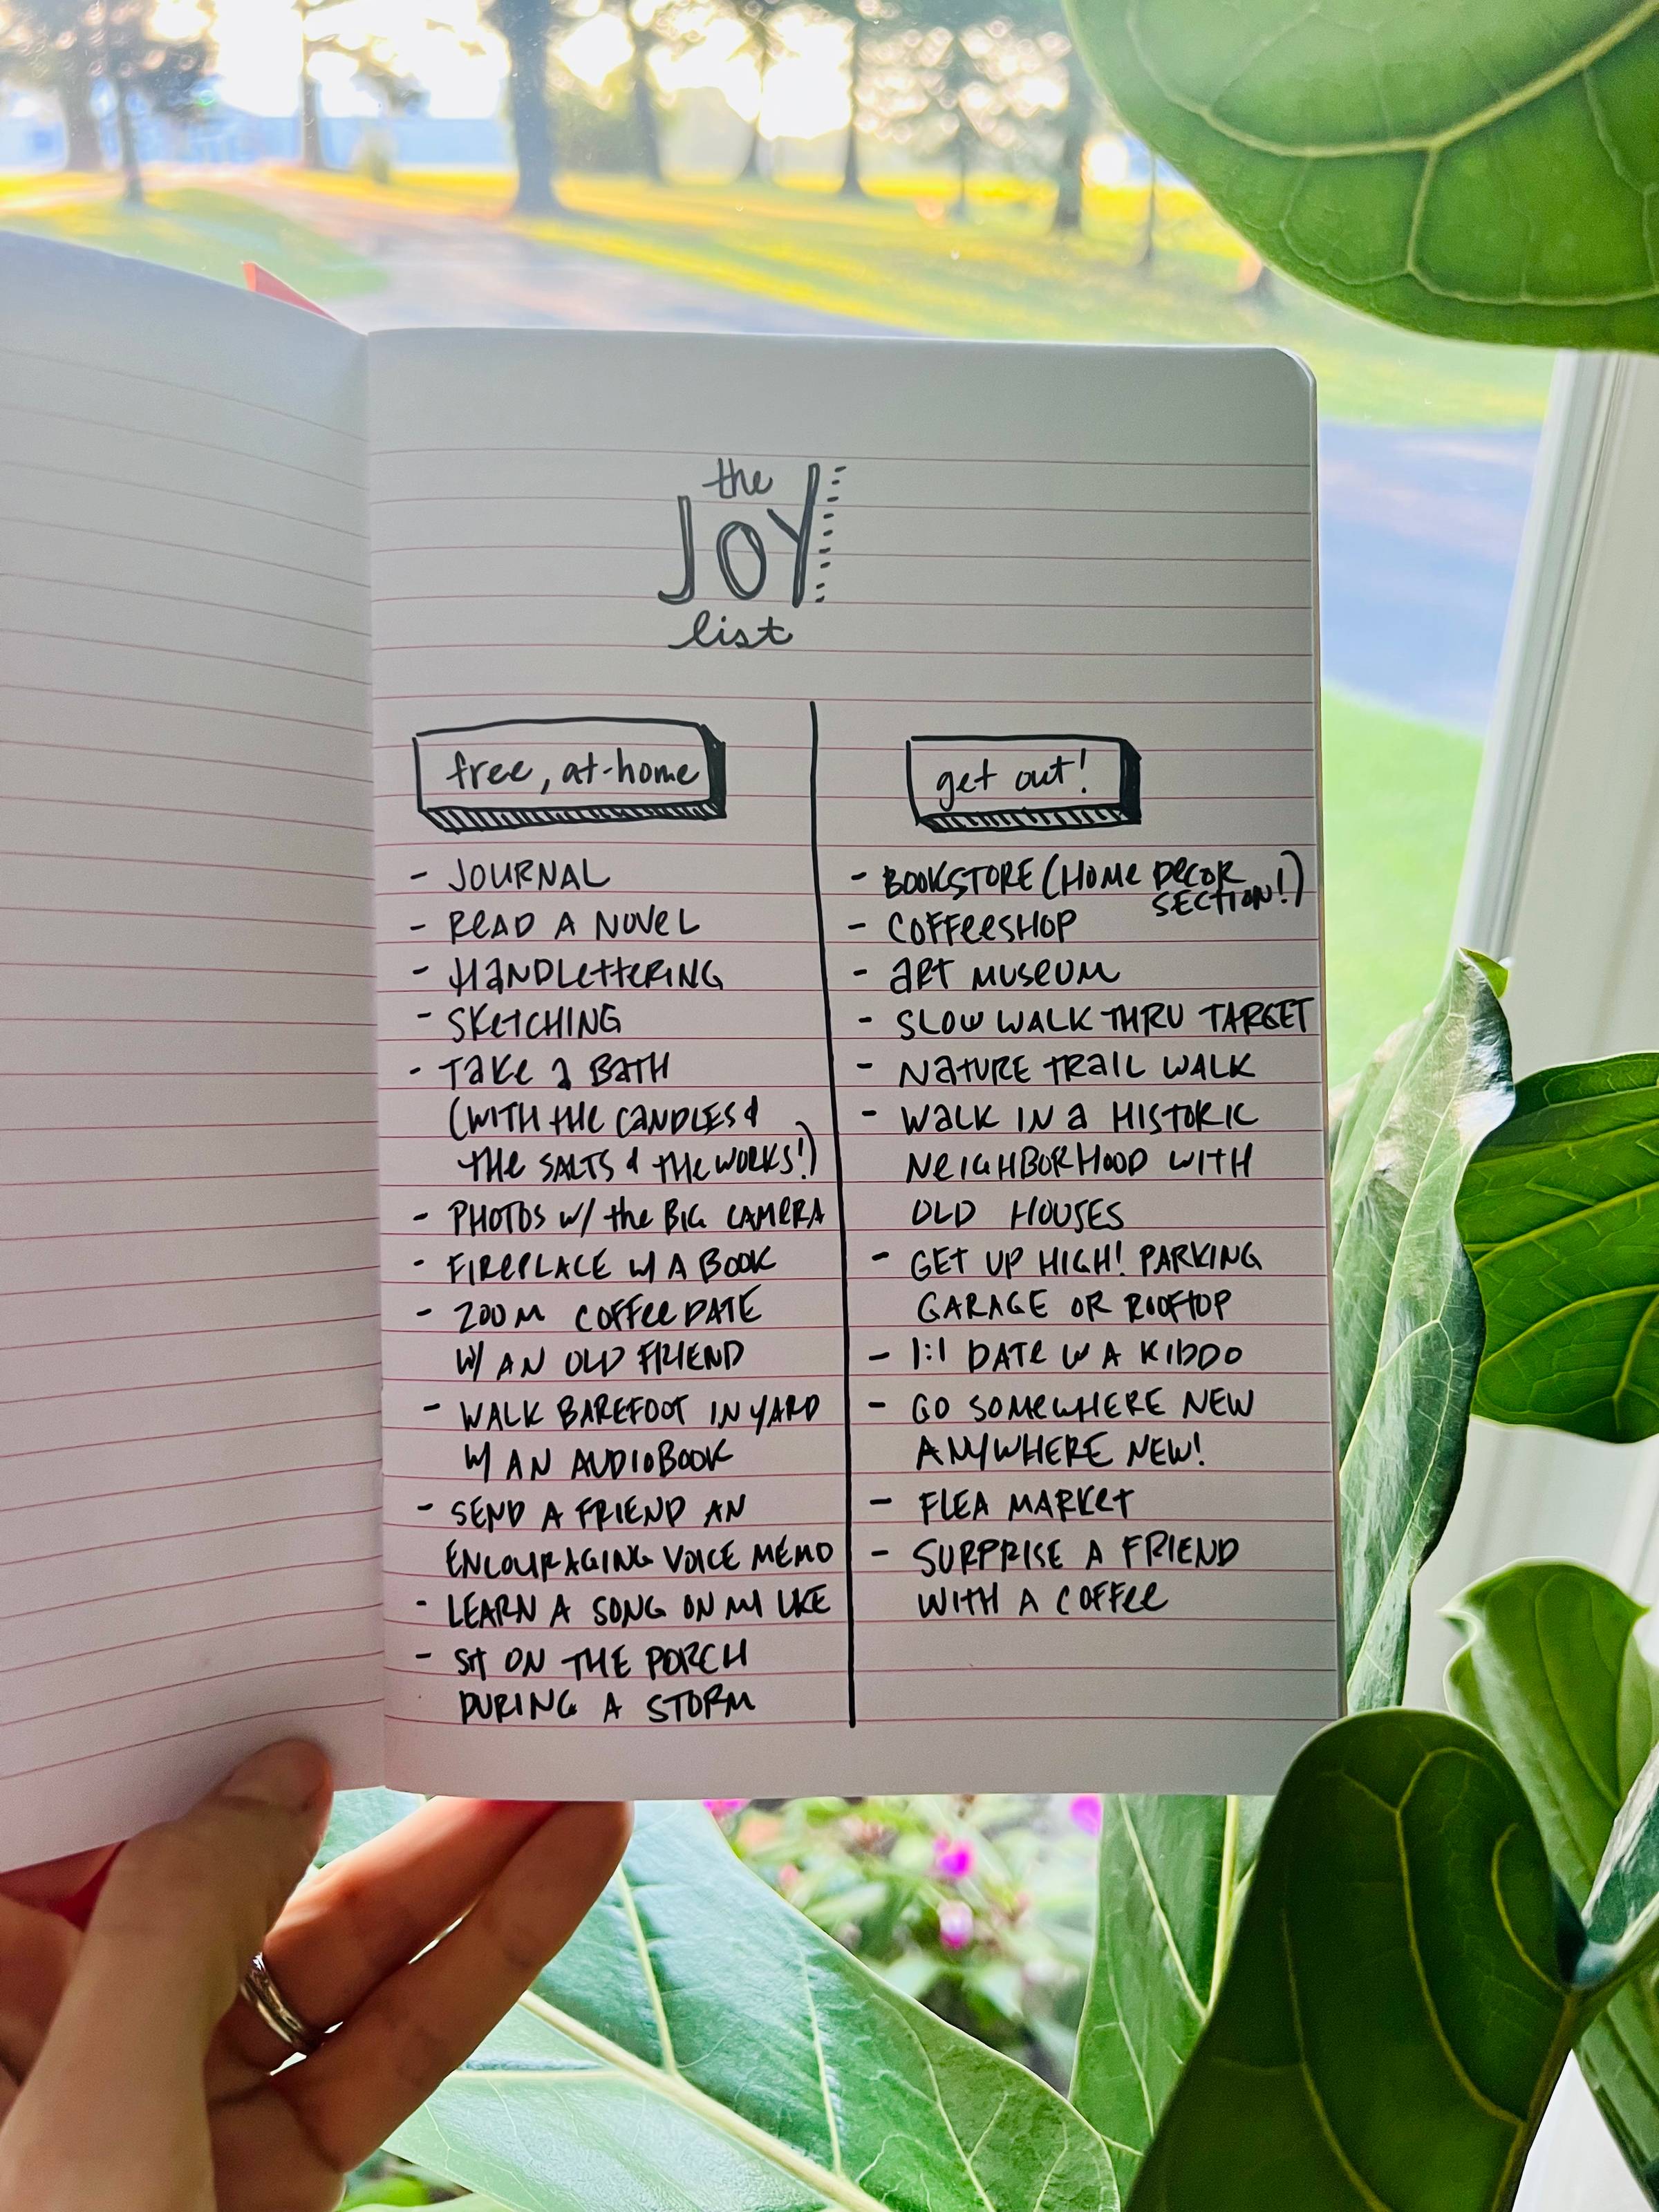 the
JOY
list
free, at-home
- JOURNAL
- READ A NOVEL
- HANDLETTERING
- SKETCHING
- TAKE A BATH
(WITH THE CANDLES &
THE SALTS & THE WORKS!)
- PHOTOS W/ the BIG CAMERA
- FIREPLACE W/ A BOOK
- ZOOM COFFEE DATE
W/ AN OLD FRIEND
- WALK BAREFOOT IN YARD
W/ AN AUDIOBOOK
- SEND A FRIEND AN
ENCOURAGING VOICE MEMO
- LEARN A SONG ON MY UKE
- SIT ON THE PORCH
DURING A STORM
get out!
- BOOKSTORE (HOME DECOR
SECTION!)
- COFFEESHOP
- ART MUSEUM
- SLOW WALK THRU TARGET
- NATURE TRAIL WALK
- WALK IN A HISTORIC
NEIGHBORHOOD WITH
OLD HOUSES
- GET UP HIGH! PARKING
GARAGE OR ROOFTOP
- 1:1 DATE W A KIDDO
- GO SOMEWHERE NEW
ANYWHERE NEW!
- FLEA MARKET
- SURPRISE A FRIEND
WITH A COFFEE